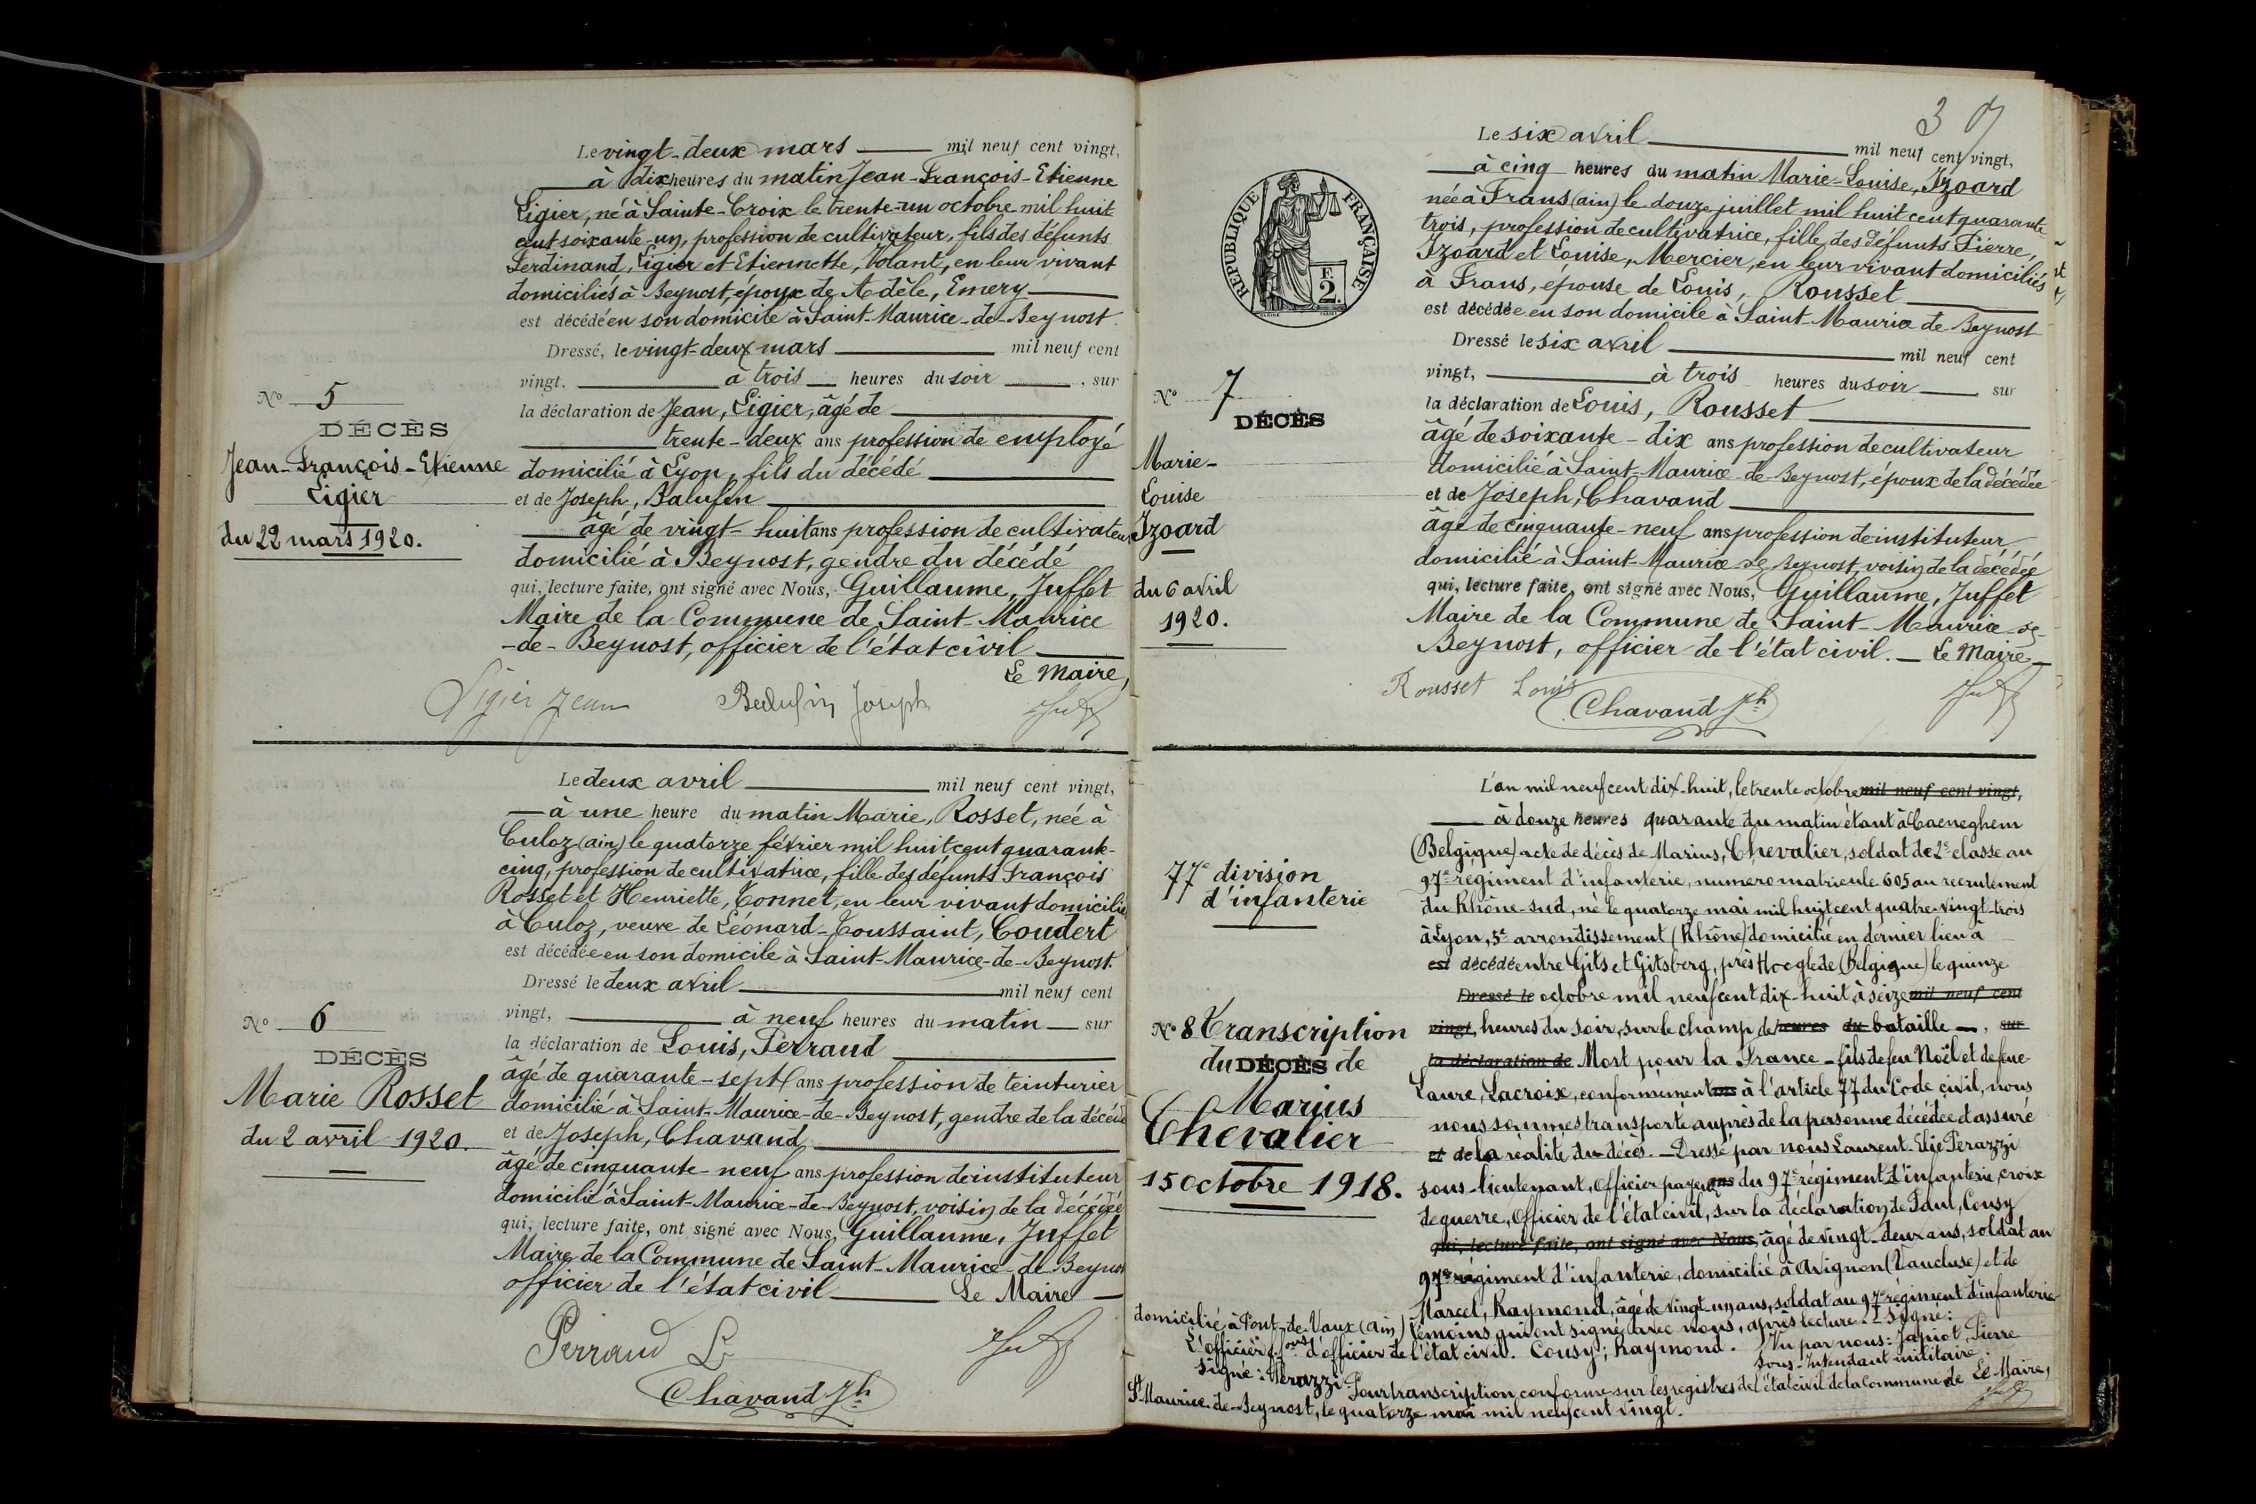 Le vingt-deux mars mil neuf cent vingt,
à dix heures du matin Jean-François-Etienne
Ligier, né à Sainte-Croix le trente-un octobre mil huit
cent soixante-un, profession de cultivateur, fils des défunts
Ferdinand, Ligier et Etiennette, Volant, en leur vivant
domiciliés à Beynost, époux de Adèle, Emery
est décédé en son domicile à Saint-Maurice-de-Beynost.
Dressé, le vingt-deux mars mil neuf cent
vingt, à trois heures du soir, sur
la déclaration de Jean, Ligier, âgé de
trente-deux ans profession de employé
domicilié à Lyon, fils du décédé
et de Joseph, Balufin
âgé de vingt-huit ans profession de cultivateur
domicilié à Beynost, gendre du décédé
qui, lecture faite, ont signé avec Nous, Guillaume, Juffet
Maire de la Commune de Saint-Maurice
-de-Beynost, officier de l'état civil
Le Maire,
Ligier Jean Balufin Joseph
N° 5
DÉCÈS
Jean-François-Etienne
Ligier
du 22 mars 1920.
Le deux avril mil neuf cent vingt,
à une heure du matin Marie, Rosset, née à
Culoz (ain) le quatorze février mil huit cent quarante-
cinq, profession de cultivatrice, fille des défunts François
Rosset et Henriette, Tonnet, en leur vivant domiciliés
à Culoz, veuve de Léonard-Toussaint, Coudert
est décédée en son domicile à Saint-Maurice-de-Beynost.
Dressé le deux avril mil neuf cent
vingt, à neuf heures du matin sur
la déclaration de Louis, Perraud
âgé de quarante-sept ans profession de teinturier
domicilié à Saint-Maurice-de-Beynost, gendre de la décédée
et de Joseph, Chavand
âgé de cinquante-neuf ans profession de instituteur
domicilié à Saint-Maurice-de-Beynost, voisin de la décédée
qui, lecture faite, ont signé avec Nous, Guillaume, Juffet
Maire de la Commune de Saint-Maurice-de-Beynost
officier de l'état civil Le Maire
Perraud L
Chavand Jh
N° 6
DÉCÈS
Marie Rosset
du 2 avril 1920.
3
Le six avril mil neuf cent vingt,
à cinq heures du matin Marie-Louise, Izoard
née à Frans (ain) le douze juillet mil huit cent quarante-
trois, profession de cultivatrice, fille des défunts Pierre,
Izoard et Louise, Mercier, en leur vivant domiciliés
à Frans, épouse de Louis, Rousset
est décédée en son domicile à Saint-Maurice de Beynost
Dressé le six avril mil neuf cent
vingt, à trois heures du soir sur
la déclaration de Louis, Rousset
âgé de soixante-dix ans profession de cultivateur
domicilié à Saint-Maurice-de-Beynost, époux de la décédée
et de Joseph, Chavand
âgé de cinquante-neuf ans profession de instituteur
domicilié à Saint-Maurice de Beynost, voisin de la décédée
qui, lecture faite, ont signé avec Nous, Guillaume, Juffet
Maire de la Commune de Saint-Maurice de
Beynost, officier de l'état civil. Le Maire
Rousset Louis
Chavand Jh
RÉPUBLIQUE FRANÇAISE
F.
2.
N° 7
DÉCÈS
Marie-
Louise
Izoard
du 6 avril
1920.
L'an mil neuf cent dix-huit, le trente octobre mil neuf cent vingt,
à douze heures quarante du matin étant à Caeneghem
(Belgique) acte de décès de Marius, Chevalier, soldat de 2e classe au
97e régiment d'infanterie, numero matricule 605 au recrutement
du Rhône-sud, né le quatorze mai mil huit cent quatre-vingt-trois
à Lyon, 5e arrondissement (Rhône) domicilié en dernier lieu à
est décédé entre Gits et Gitsberg, près Hooglede (Belgique) le quinze
Dressé le octobre mil neuf cent dix-huit à seize mil neuf cent
vingt, heures du soir, sur le champ de heures du bataille, sur
la déclaration de Mort pour la France - fils de feu Noël et de feue
Laure, Lacroix, conformement ans à l'article 77 du Code civil, nous
nous sommes transporté auprès de la personne décédée et assuré
et de la réalité du décès. - Dressé par nous Laurent-Elie Perazzi
sous-lieutenant, Officier payeur ans du 97e régiment d'infanterie, croix
de guerre, Officier de l'état civil, sur la déclaration de Paul, Cousy
qui, lecture faite, ont signé avec Nous, âgé de vingt-deux ans, soldat au
97e régiment d'infanterie, domicilié à Avignon (Vaucluse) et de
Marcel, Raymond, âgé de vingt un ans, soldat au 97e régiment d'infanterie
domicilié à Pont-de-Vaux (Ain) témoins qui ont signé avec nous, après lecture. - Signé:
L'officier f. ons d'officier de l'état civil. Cousy; Raymond. Vu par nous: Japiot, Pierre
Signé: Perazzi Sous-Intendant militaire.
Pour transcription conforme sur les registres de l'état civil de la commune de Le Maire,
St Maurice-de-Beynost, le quatorze mai mil neuf cent vingt.
77e division
d'infanterie
N° 8 Transcription
du DÉCÈS de
Marius
Chevalier
15 octobre 1918.